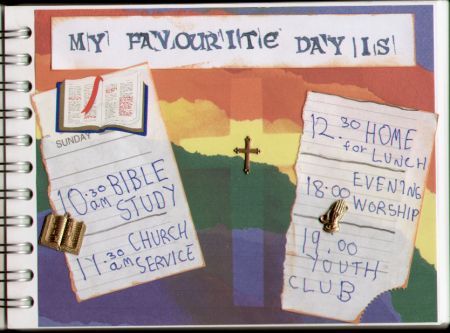 MY FAVOURITE DAY IS
SUNDAY
10.30 BIBLE
am STUDY
11.30 CHURCH
am SERVICE
12.30 HOME
for LUNCH
18.00 EVENING
WORSHIP
19.00
YOUTH
CLUB